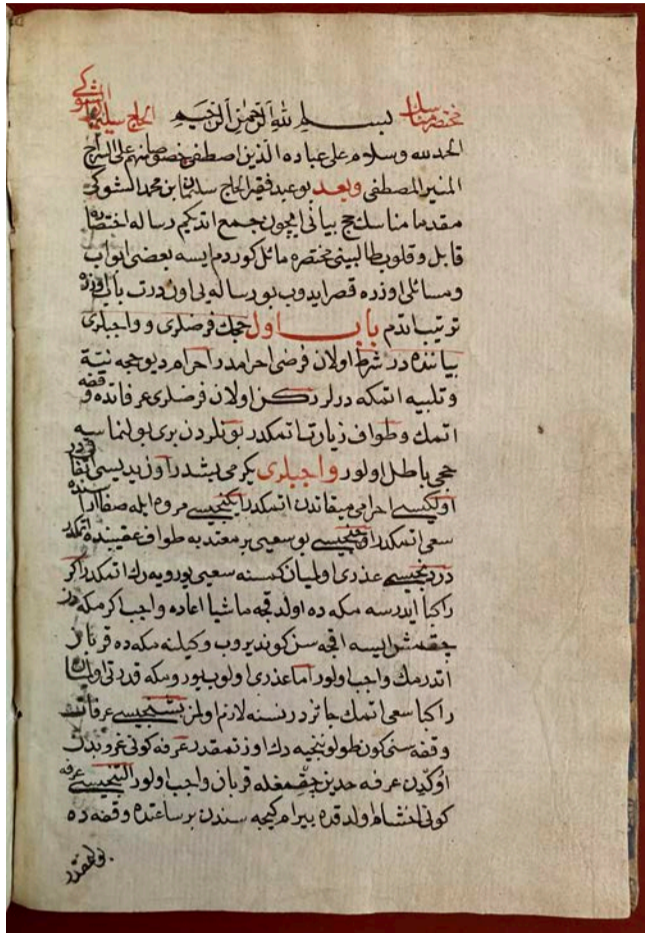 مختصر مناسك بسم الله الرحمن الرحيم الحاج سليمان الشوكي
الحمد لله وسلام على عباده الذين اصطفى خصوصا منهم على السراج
المنير المصطفى وبعد بو عبد فقير الحاج سليمان ابن محمد الشوكي
مقدما مناسك حج بياني ايچون جمع اتديكم رساله اختصاره
قابل وقلوب طالبيني مختصره مائل كوردم ايسه بعضى ابواب
ومسائلى اوزره قصر ايدوب بو رساله يى اون درت باب اوزره
ترتيب اتدم باب اول حجك فرضلرى وواجبلرى
بياننده در شرط اولان فرضى احرامدر احرام ديو حجه نيتة
وتلبيه اتمكه درلر ركن اولان فرضلرى عرفاتده وقفه
اتمك وطواف زيارت اتمكدر بونلردن برى بولنماسه
حجى باطل اولور واجبلرى يكرمى بشدر اون يديسى
اولكيسى احرامى ميقاتدن اتمكدر ايكنجيسى مروه ايله صفا اراسنده
سعى اتمكدر اوچنجيسى بو سعيى بر معتد به طواف عقيبنده اتمكدر
دردنجيسى عذرى اوليان كمسنه سعيى يورويه رك اتمكدر اكر
راكبا ايدرسه مكه ده اولدقجه ماشيا اعاده واجب اكر مكه دن
چقمش ايسه اقچه سن كوندروب وكيلنه مكه ده قربان
اتدرمك واجب اولور اما عذرى اولوب يورومكه قدرتى اوليان
راكبا سعى اتمك جائزدر نسنه لازم اولمز بشنجيسى عرفات
وقفه سنى كون طولوننجيه دك اوزتمقدر عرفه كونى غروبدن
اوكدين عرفه حدين چقمغله قربان واجب اولور التنجيسى عرفه
كونى اخشام اولدقده بيرام كيجه سندن بر ساعتده وقفه ده
بولنمقدر